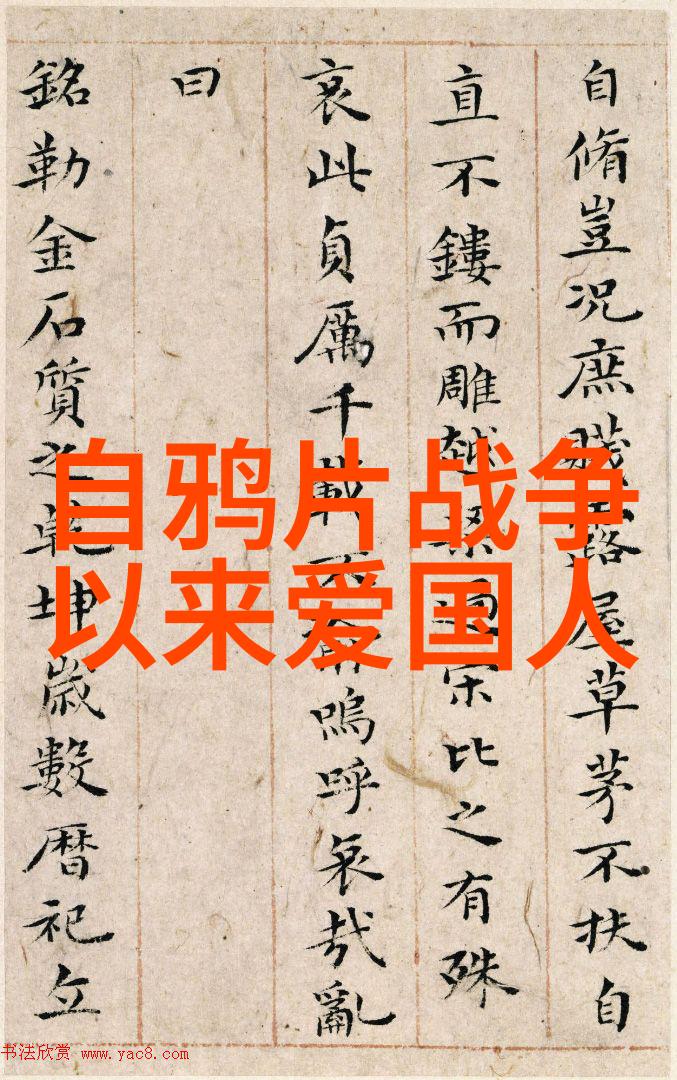 自脩豈況庶屋草茅不扶自
直不鏤而雕越宋比之有殊
哀此貞厲千載不嗚呼哀哉亂
曰
銘勒金石質之乾坤歲數曆祀立
自鸦片战争
以来爱国人
书法欣赏 www.yac8.com